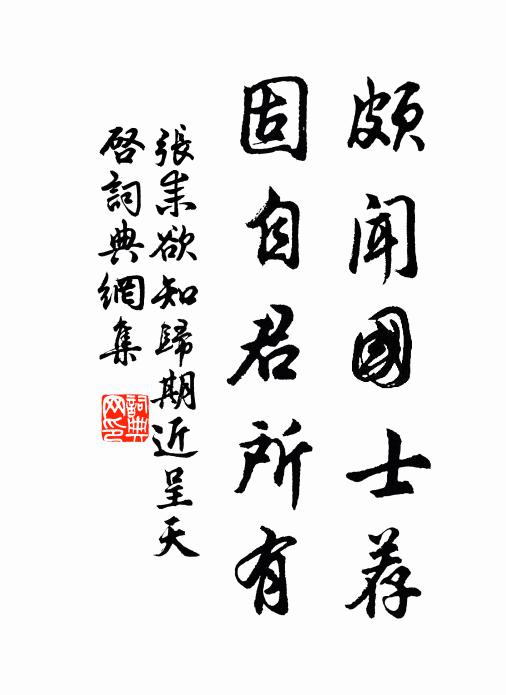 頗聞國士荐
固自君所有
張耒欲知歸期近呈天
啓詞典網集
詞典
网印